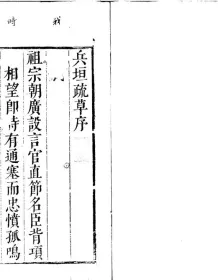 兵垣疏草序
祖宗朝廣設言官直節名臣背項
相望卽時有通塞而忠憤孤鳴